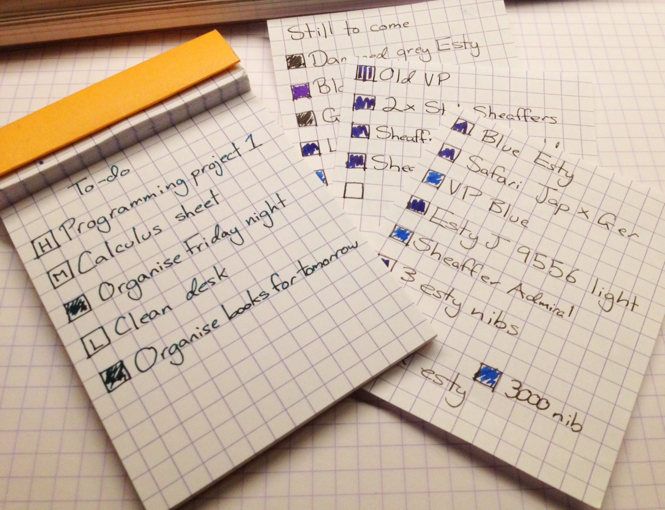 To-do
H Programming project 1
M Calculus sheet
Organise Friday night
L Clean desk
Organise books for tomorrow
Still to come
grey Esty
G
L
Old VP
2x Sheaffers
Sheaff
Shea
Blue Esty
Safari Jap x Ger
VP Blue
Esty J 9556 light
Sheaffer Admiral
3 esty nibs
esty 3000 nib